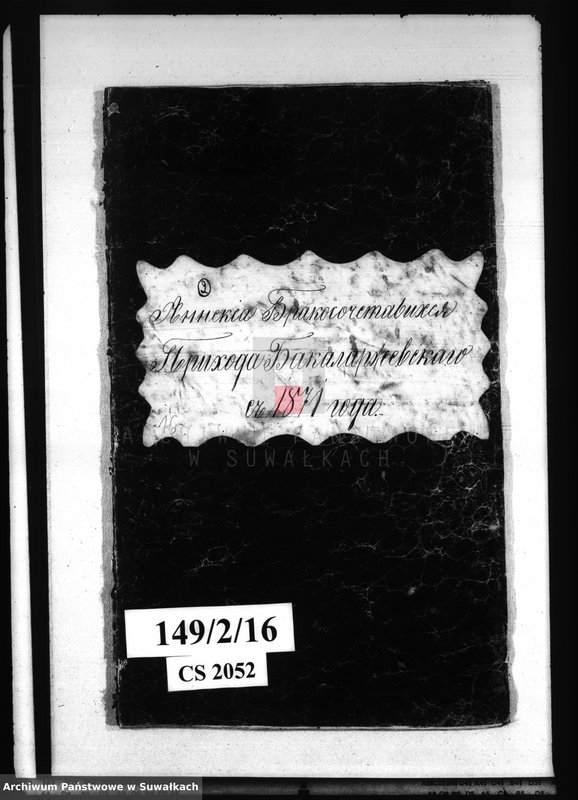 2
Аннскіе Бракосочетавихся
Прихода Бакалар(ж)евскаго
съ 1871 года.
16
W SUWAŁKACH
149/2/16
CS 2052
Archiwum Państwowe w Suwałkach